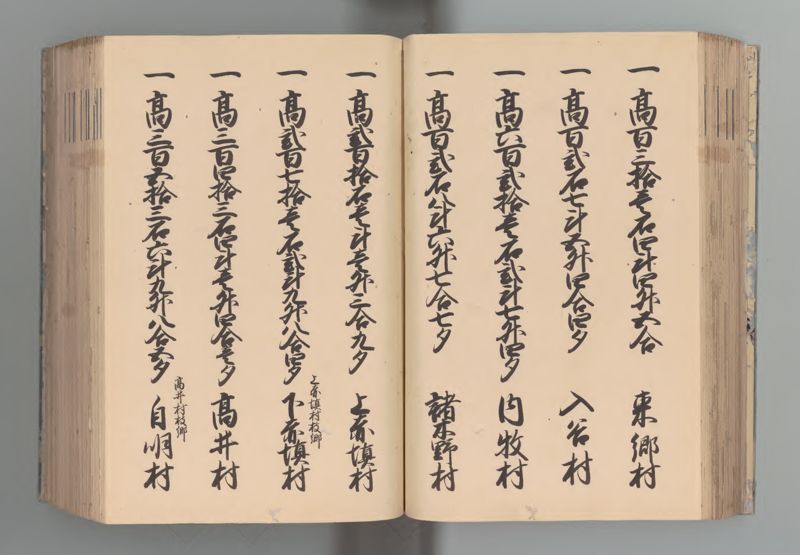 一 高百三拾壱石四斗四升五合 東郷村
一 高百弐石七斗五升四合四夕 入谷村
一 高六百弐拾壱石弐斗七升四夕 内牧村
一 高百弐石八斗六升七合七夕 諸木野村
一 高弐百拾石壱斗壱升三合九夕 上赤埴村
一 高弐百七拾壱石弐斗九升八合四夕 上赤埴村枝郷 下赤埴村
一 高三百四拾三石四斗壱升四合壱夕 高井村
一 高三百五拾三石六斗九升八合五夕 高井村枝郷 自明村